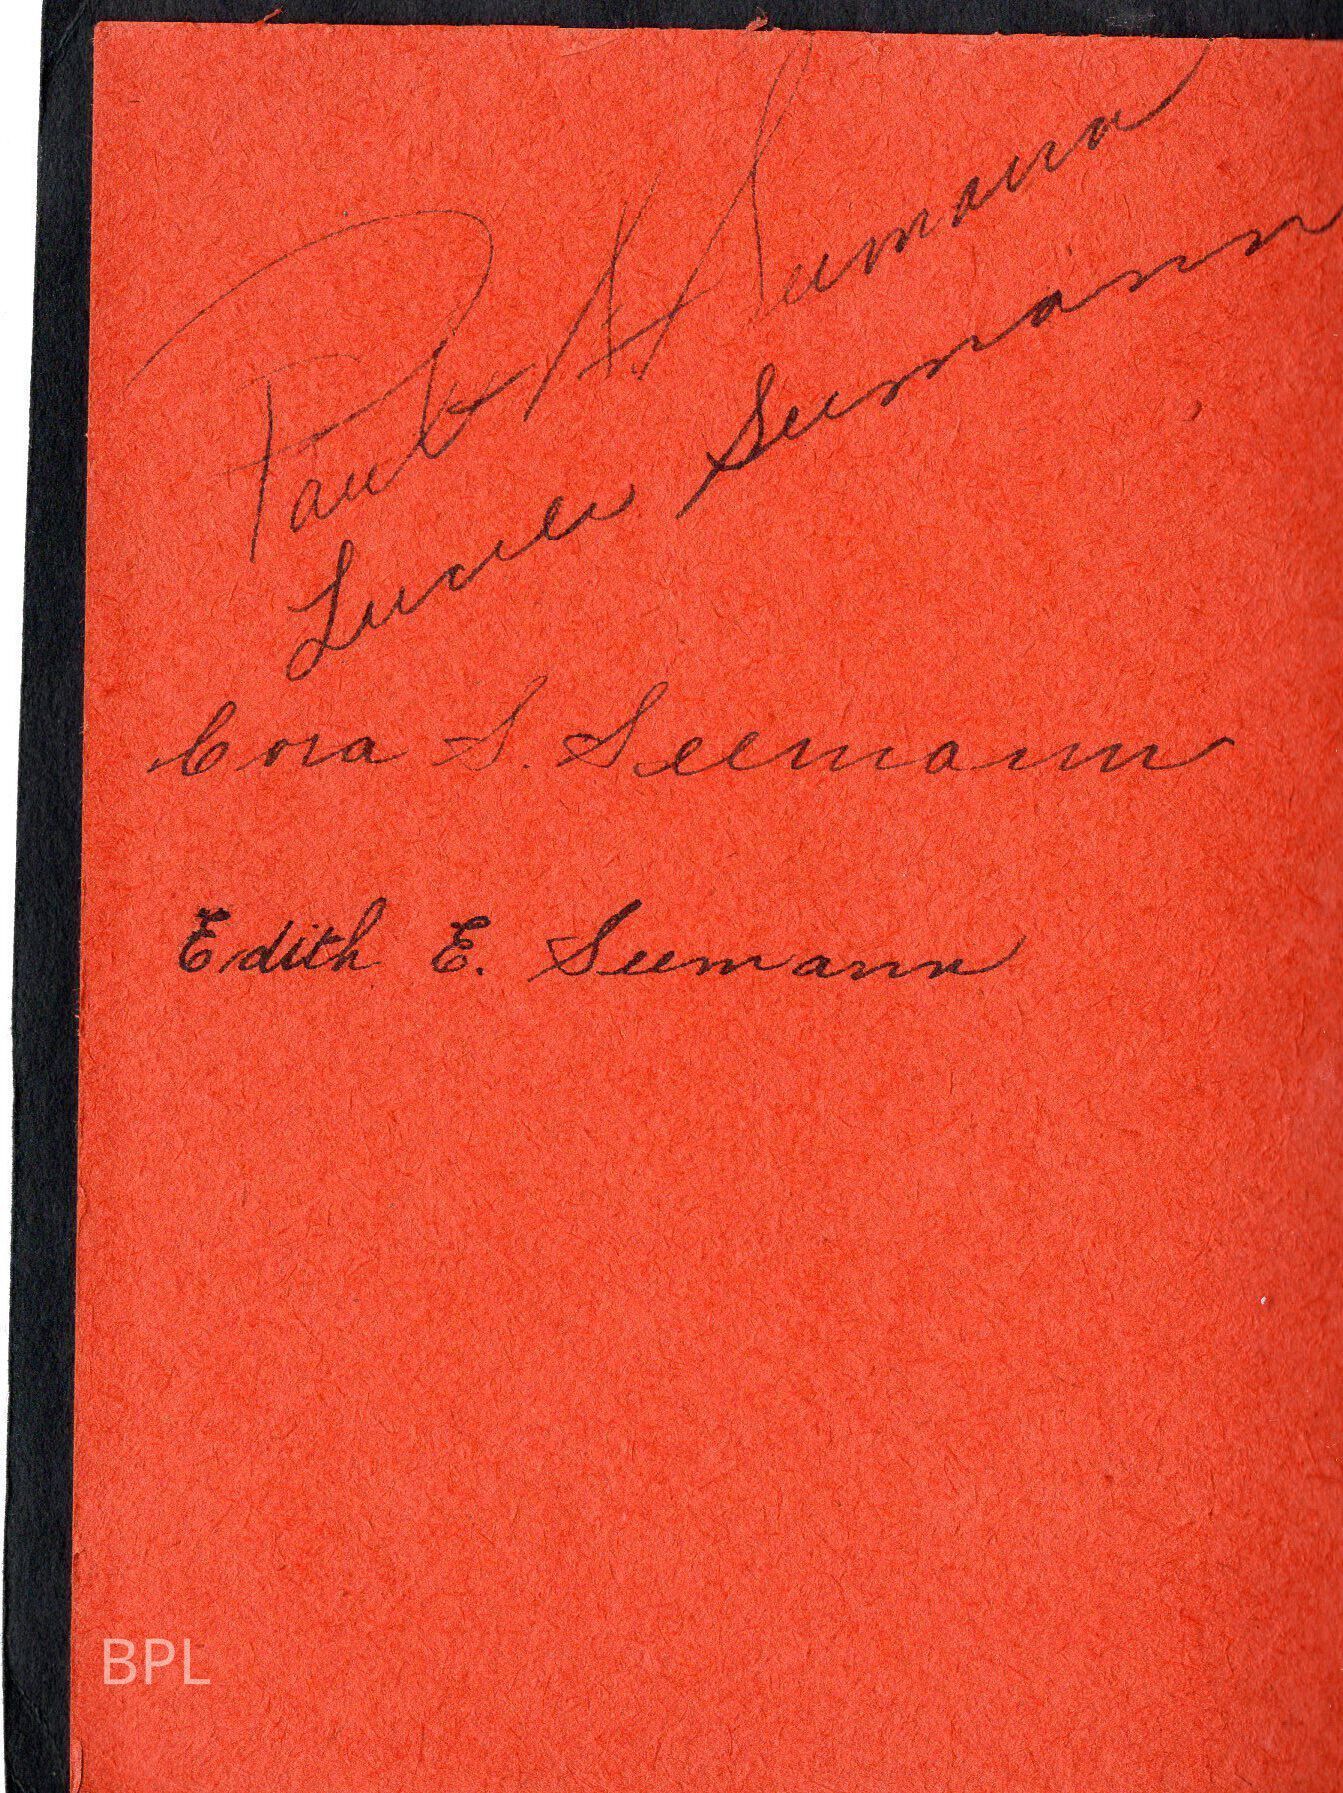 Paul H. Seemann
Lucile Seemann
Cora S. Seemann
Edith E. Seemann
BPL